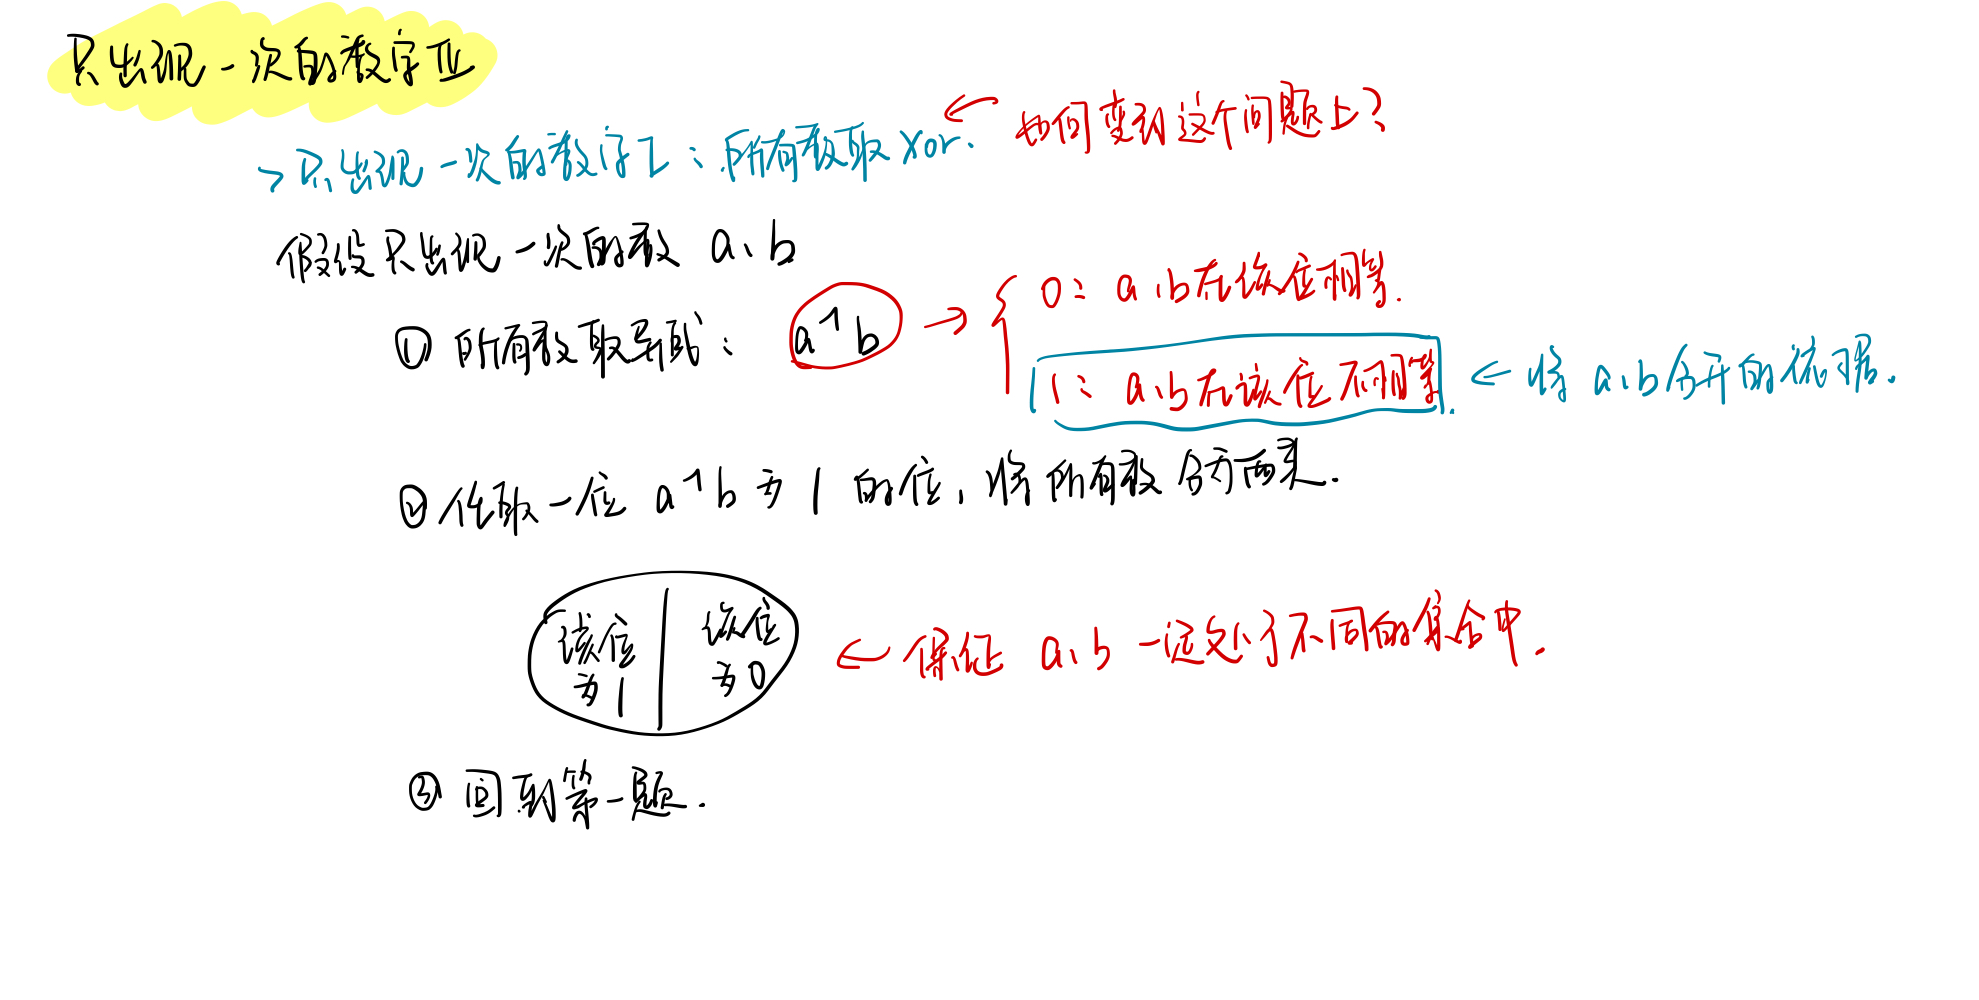 只出现一次的数字 III
> 只出现一次的数字 I：所有数取 xor. ← 如何变到这个问题上？
假设只出现一次的数 a、b
① 所有数取异或： a^b → { 0：a、b在该位相等.
1：a、b在该位不相等. ← 将 a、b分开的依据.
② 任取一位 a^b 为 1 的位，将所有数分为两类.
该位为1 | 该位为0 ← 保证 a、b 一定处于不同的集合中.
③ 回到第一题.